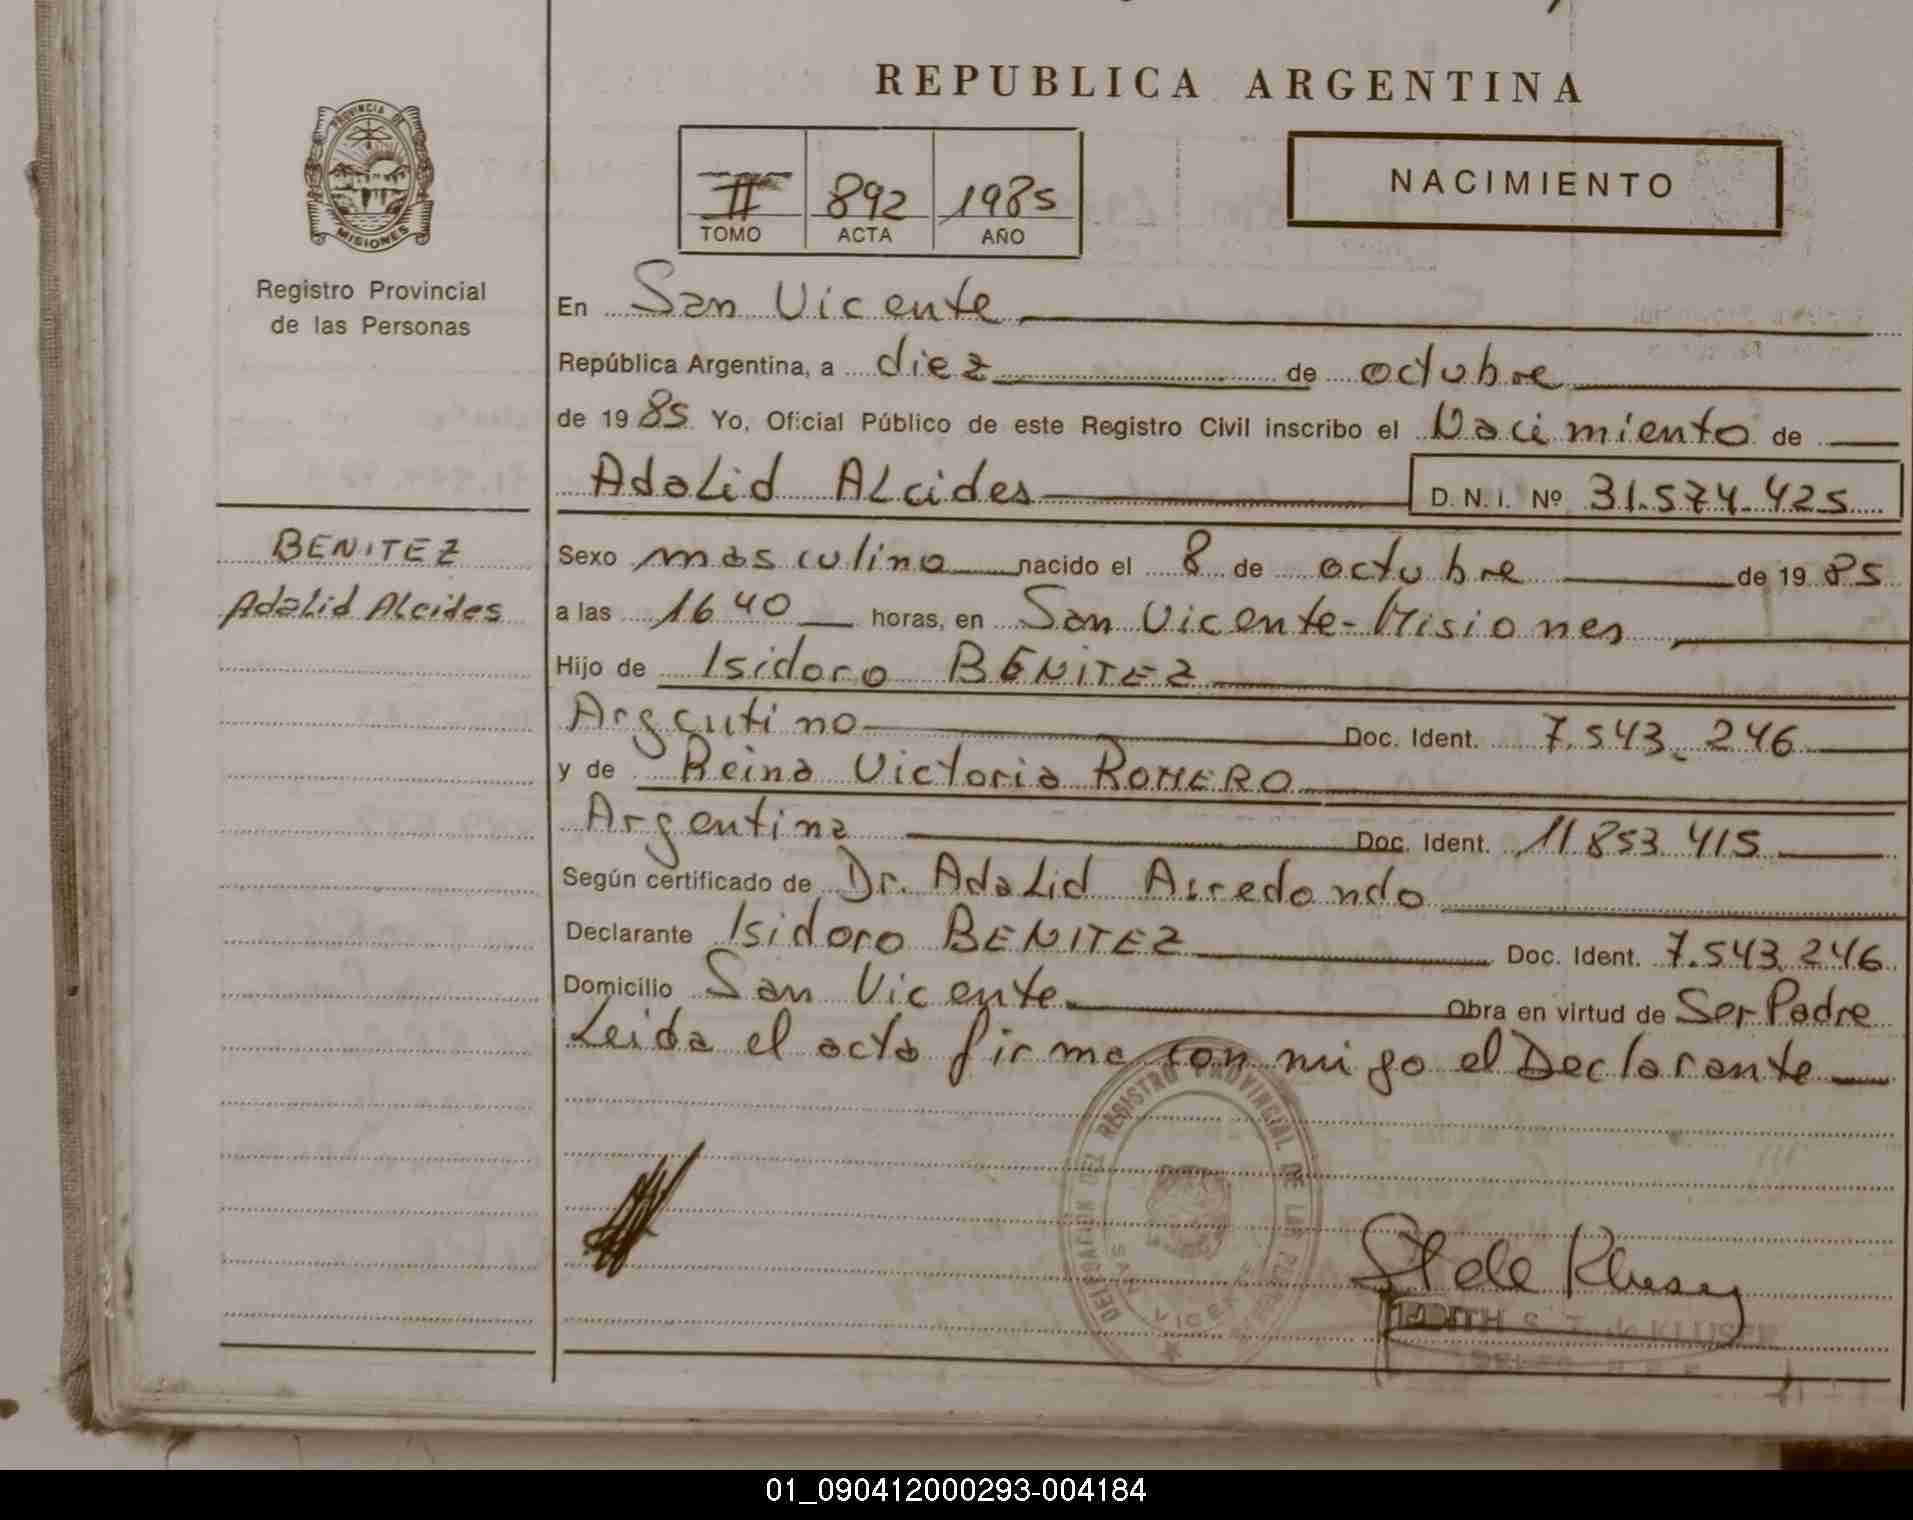 REPUBLICA ARGENTINA
PROVINCIA DE
MISIONES
Registro Provincial
de las Personas
II 892 1985
TOMO ACTA AÑO
NACIMIENTO
En San Vicente
República Argentina, a diez de octubre
de 1985 Yo, Oficial Público de este Registro Civil inscribo el Nacimiento de
Adalid Alcides D.N.I. Nº 31.574.425
BENITEZ
Adalid Alcides
Sexo masculino nacido el 8 de octubre de 1985
a las 16 40 horas, en San Vicente-Misiones
Hijo de Isidoro BENITEZ
Argentino Doc. Ident. 7.543.246
y de Reina Victoria ROMERO
Argentina Doc. Ident. 11.853.415
Según certificado de Dr. Adalid Arredondo
Declarante Isidoro BENITEZ Doc. Ident. 7.543.246
Domicilio San Vicente Obra en virtud de Ser Padre
Leida el acta firma con migo el Declarante
DELEGACION DEL REGISTRO PROVINCIAL DE LAS PERSONAS
SAN VICENTE
EDITH S. T. de KLUSEN
01_090412000293-004184